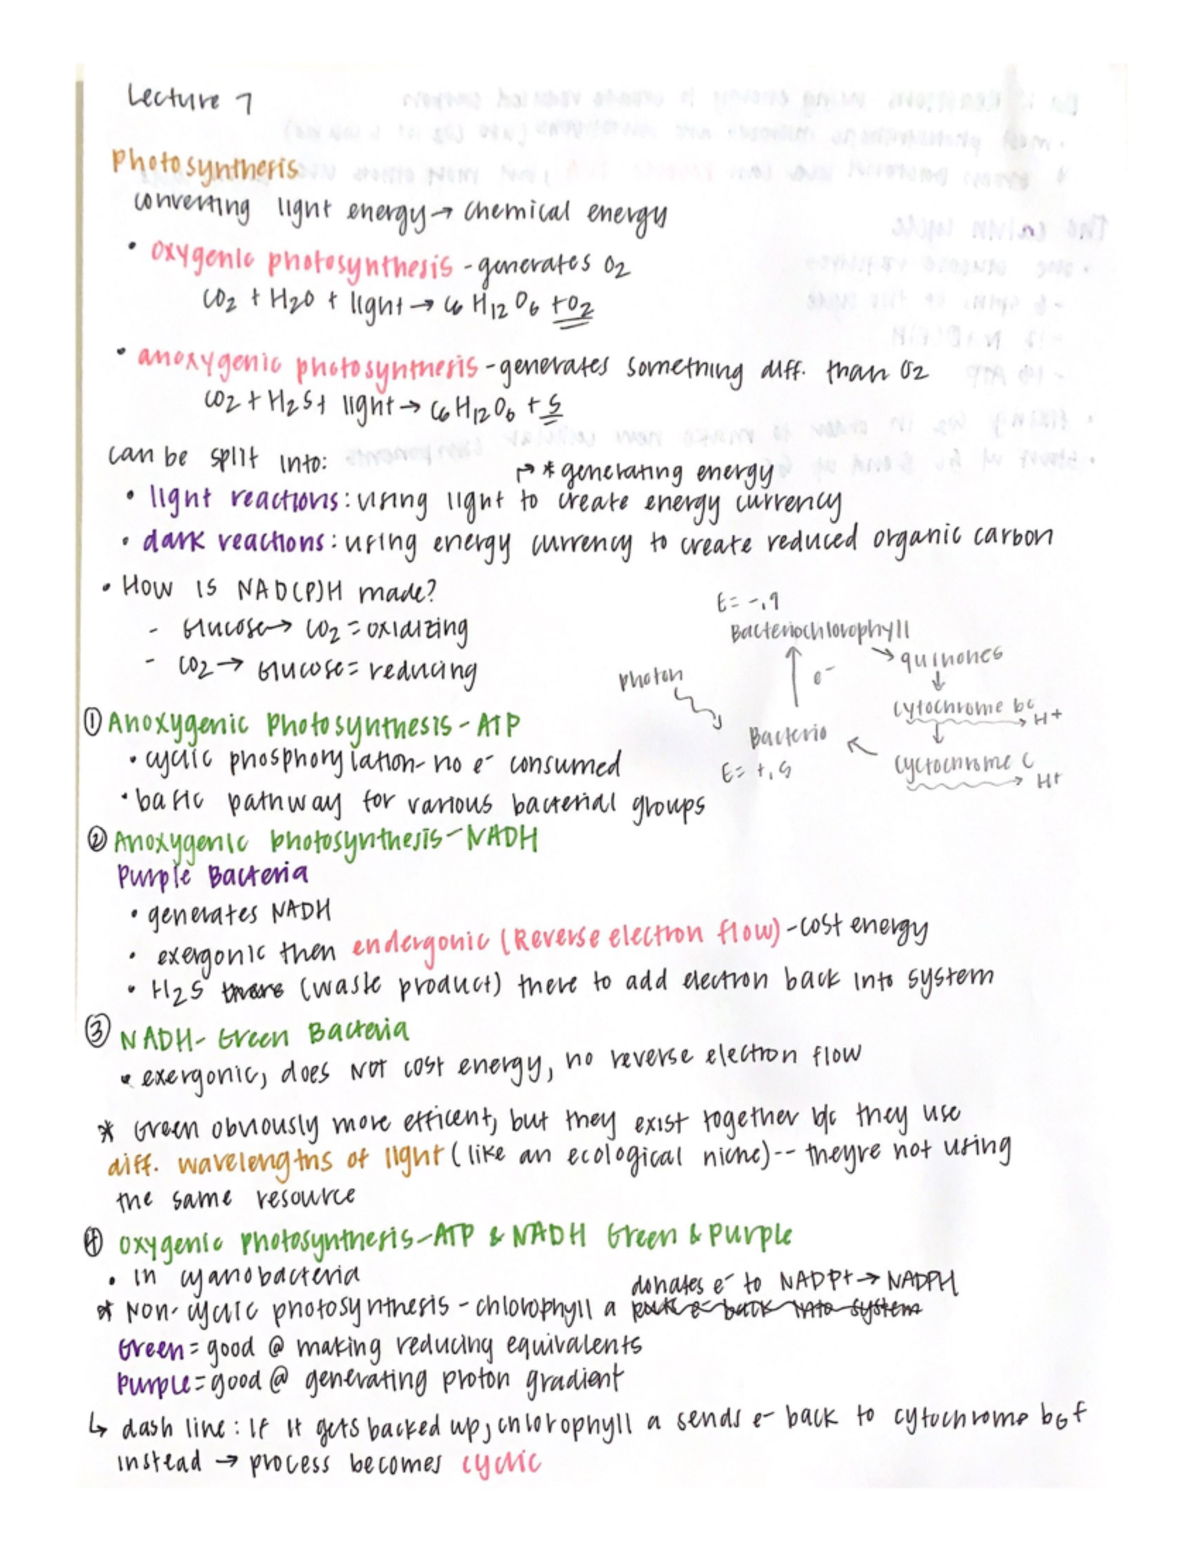 Lecture 7
Photosynthesis
converting light energy → chemical energy
• oxygenic photosynthesis - generates O2
CO2 + H2O + light → C6H12O6 + O2
• anoxygenic photosynthesis - generates something diff. than O2
CO2 + H2S + light → C6H12O6 + S
can be split into:
↱ * generating energy
• light reactions: using light to create energy currency
• dark reactions: using energy currency to create reduced organic carbon
• How is NAD(P)H made?
- Glucose → CO2 = oxidizing
- CO2 → Glucose = reducing
E = -.9
Bacteriochlorophyll
→ quinones
photon
e-
cytochrome bc
→ H+
Bacterio
E = +.5
cyctochrome c
→ H+
① Anoxygenic Photosynthesis - ATP
• cyclic phosphorylation - no e- consumed
• basic pathway for various bacterial groups
② Anoxygenic photosynthesis - NADH
Purple Bacteria
• generates NADH
• exergonic then endergonic (Reverse electron flow) - cost energy
• H2S (waste product) there to add electron back into system
③ NADH - Green Bacteria
• exergonic, does NOT cost energy, no reverse electron flow
* Green obviously more efficent, but they exist together b/c they use
diff. wavelengths of light (like an ecological niche) -- theyre not using
the same resource
④ oxygenic photosynthesis - ATP & NADH Green & Purple
• in cyanobacteria
donates e- to NADP+ → NADPH
* Non-cyclic photosynthesis - chlorophyll a puts e- back into system
Green = good @ making reducing equivalents
Purple = good @ generating proton gradient
↳ dash line: If it gets backed up, chlorophyll a sends e- back to cytochrome b6f
instead → process becomes cyclic